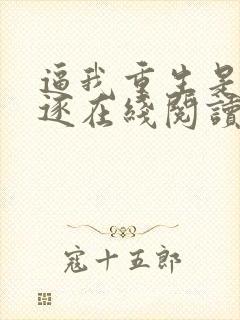 逼我重生是
逐在綫閱讀
寇十五郎